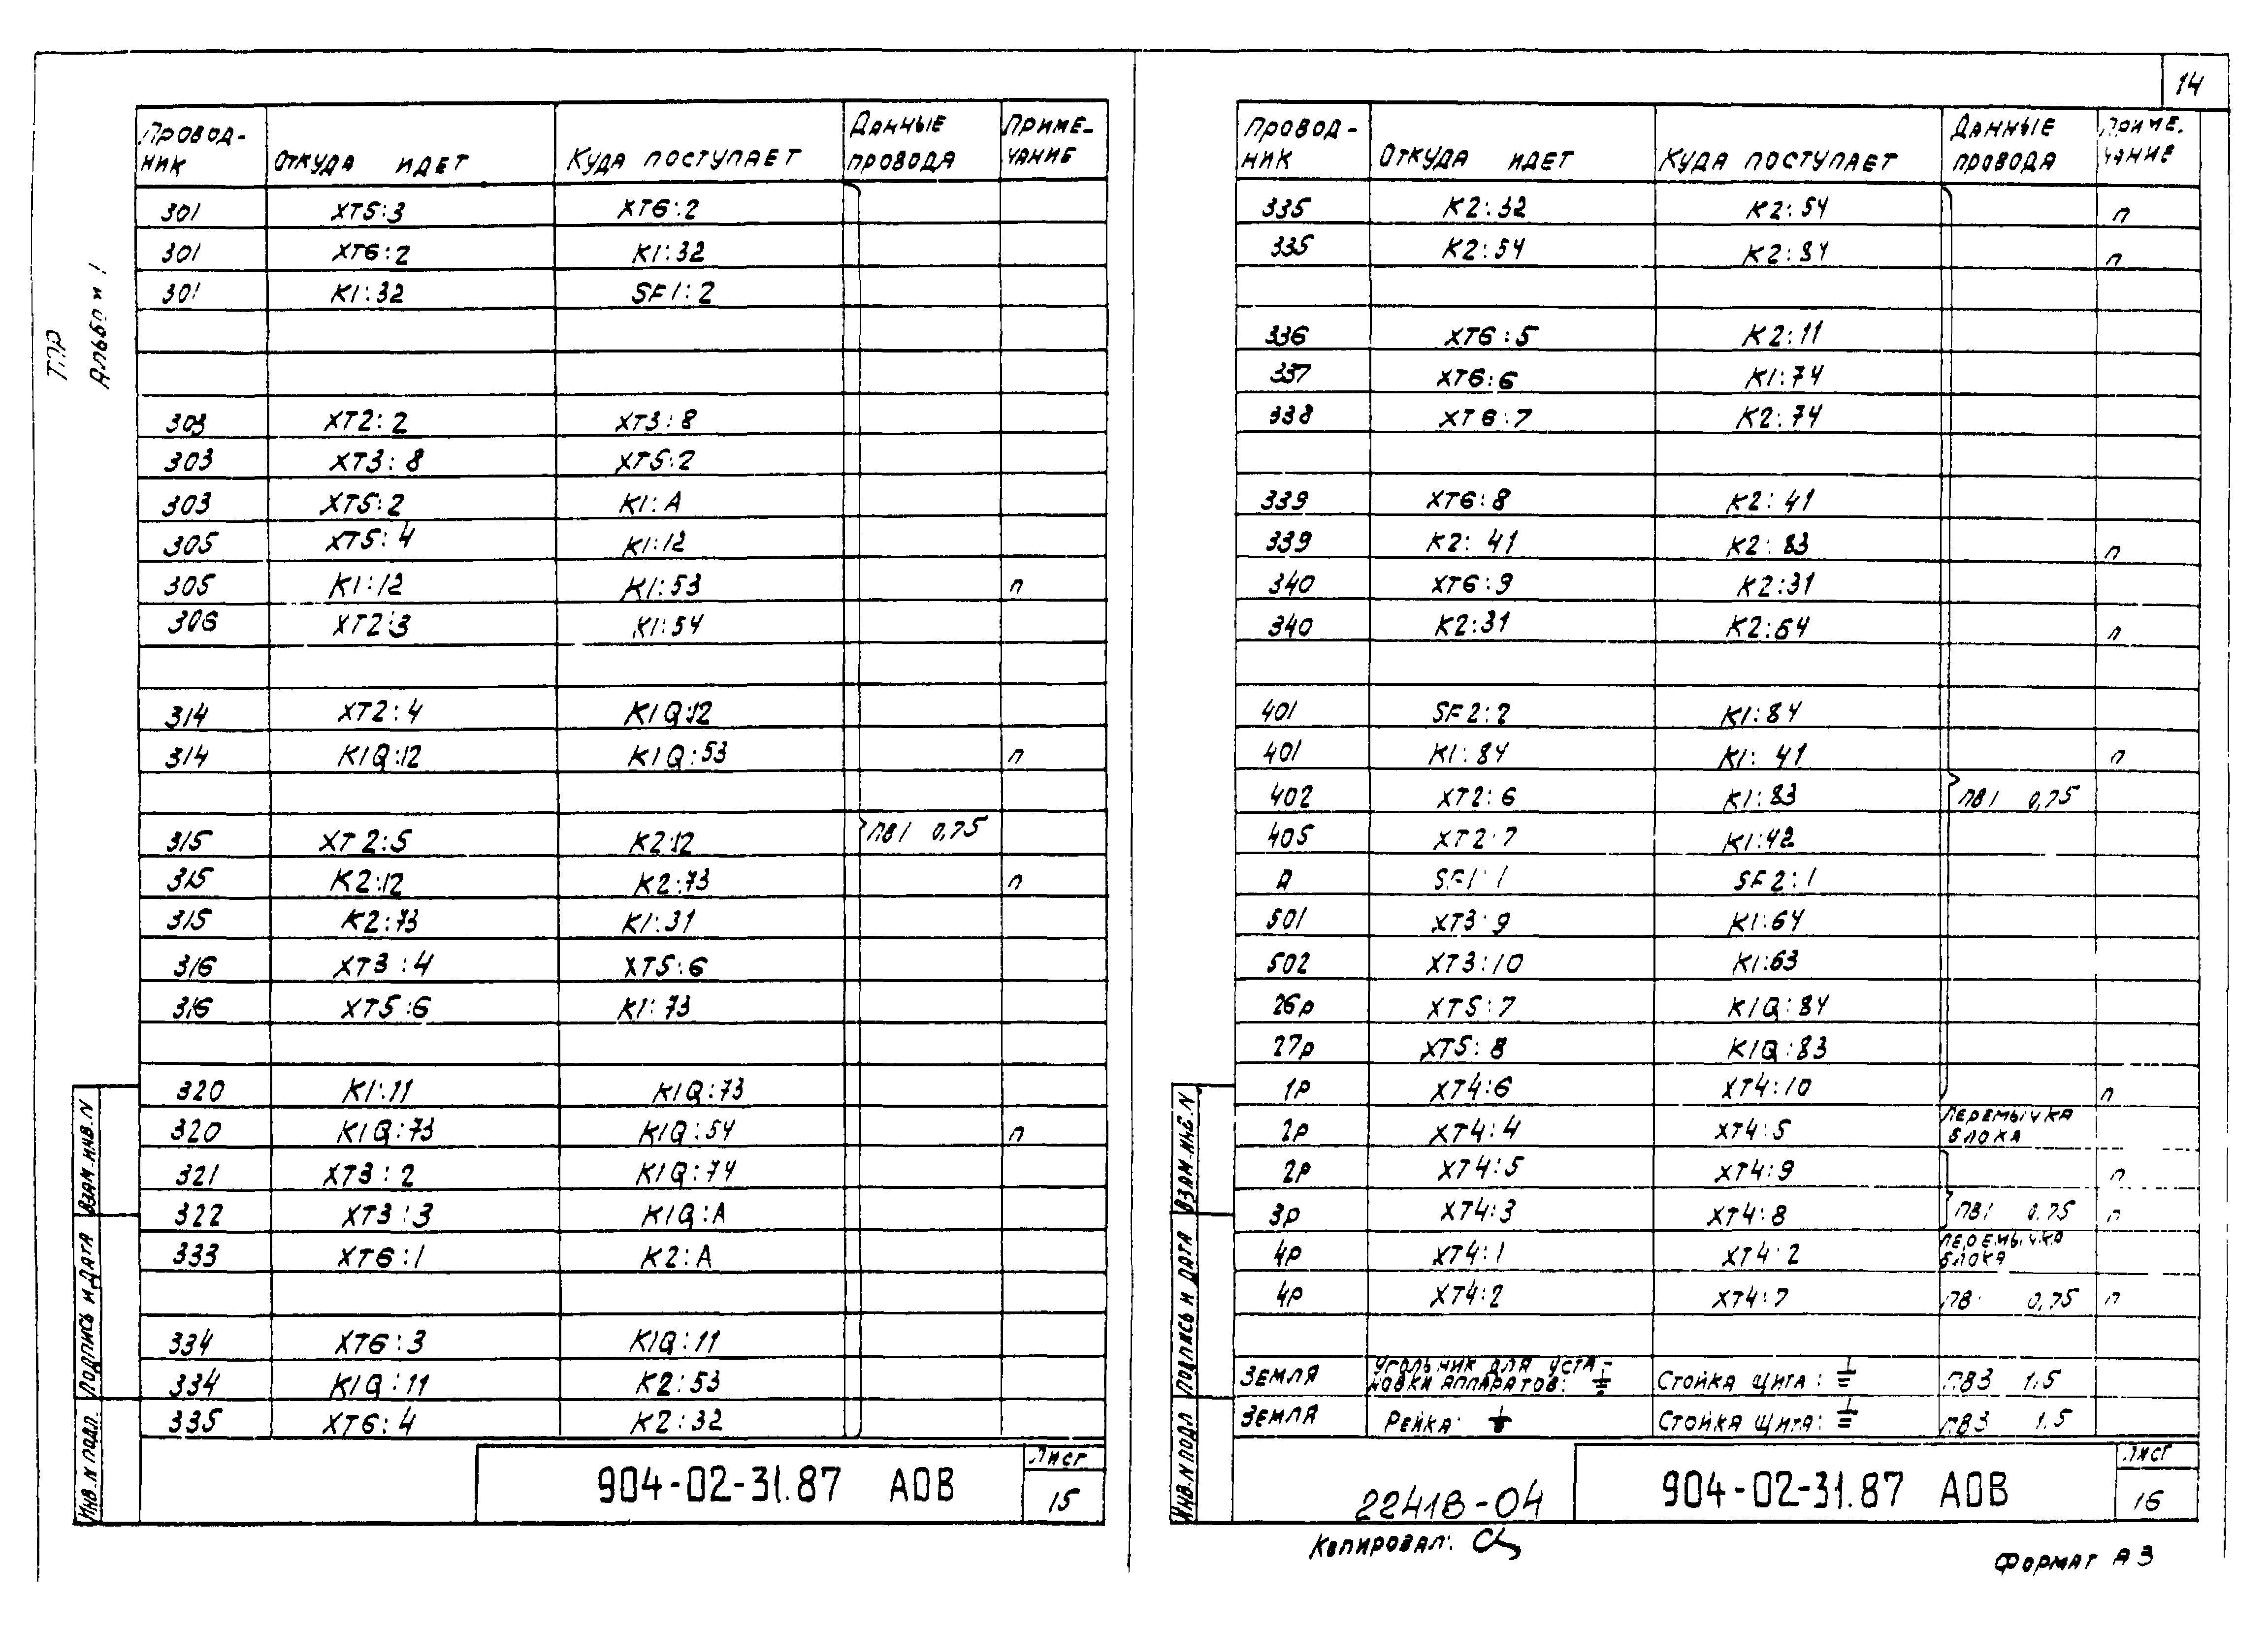 14
ТПР
Альбом 1
Провод-
ник Откуда идет Куда поступает Данные провода Приме-
чание
301 XT5:3 XT6:2
301 XT6:2 K1:32
301 K1:32 SF1:2
303 XT2:2 XT3:8
303 XT3:8 XT5:2
303 XT5:2 K1:A
305 XT5:4 K1:12
305 K1:12 K1:53 п
306 XT2:3 K1:54
314 XT2:4 K1Q:12
314 K1Q:12 K1Q:53 п
315 XT2:5 K2:12 ПВ1 0,75
315 K2:12 K2:73 п
315 K2:73 K1:31
316 XT3:4 XT5:6
316 XT5:6 K1:73
320 K1:11 K1Q:73
320 K1Q:73 K1Q:54 п
321 XT3:2 K1Q:74
322 XT3:3 K1Q:A
333 XT6:1 K2:A
334 XT6:3 K1Q:11
334 K1Q:11 K2:53
335 XT6:4 K2:32
Взам.инв.N
Подпись и дата
Инв.N подл.
904-02-31.87 АОВ
Лист
15
Провод-
ник Откуда идет Куда поступает Данные провода Приме-
чание
335 K2:32 K2:54 п
335 K2:54 K2:84 п
336 XT6:5 K2:11
337 XT6:6 K1:74
338 XT6:7 K2:74
339 XT6:8 K2:41
339 K2:41 K2:83 п
340 XT6:9 K2:31
340 K2:31 K2:64 п
401 SF2:2 K1:84
401 K1:84 K1:41 п
402 XT2:6 K1:83 ПВ1 0,75
405 XT2:7 K1:42
A SF1:1 SF2:1
501 XT3:9 K1:64
502 XT3:10 K1:63
26р XT5:7 K1Q:84
27р XT5:8 K1Q:83
1р XT4:6 XT4:10 п
2р XT4:4 XT4:5 Перемычка блока
2р XT4:5 XT4:9 п
3р XT4:3 XT4:8 ПВ1 0,75 п
4р XT4:1 XT4:2 Перемычка блока
4р XT4:2 XT4:7 ПВ1 0,75 п
Земля Угольник для уста-
новки аппаратов: ⏚ Стойка щита: ⏚ ПВ3 1,5
Земля Рейка: ⏚ Стойка щита: ⏚ ПВ3 1.5
Взам.инв.N
Подпись и дата
Инв.N подл
22418-04
904-02-31.87 АОВ
Лист
16
Копировал:
Формат А3